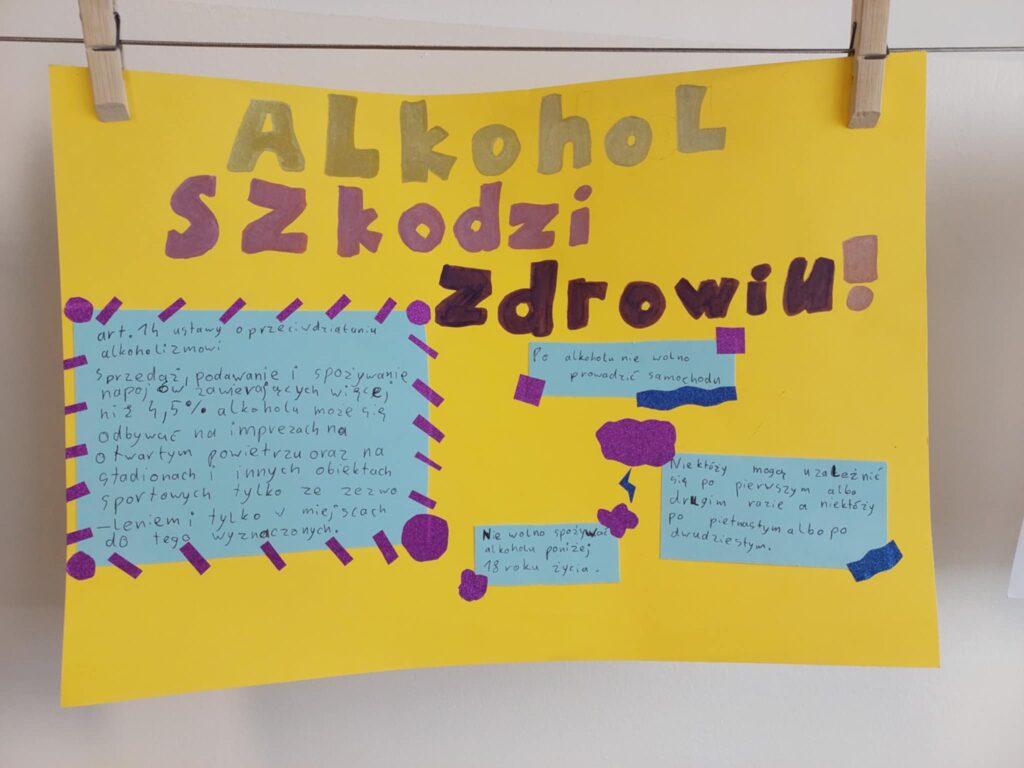 ALkohoL
SZkodzi
Zdrowiu!
art. 14 ustawy o przeciwdziałaniu
alkoholizmowi
Sprzedaż, podawanie i spożywanie
napojów zawierających więcej
niż 4,5% alkoholu może się
odbywać na imprezach na
otwartym powietrzu oraz na
stadionach i innych obiektach
sportowych tylko ze zezwo
-leniem i tylko w miejscach
do tego wyznaczonych.
Po alkoholu nie wolno
prowadzić samochodu
Niektórzy mogą uzależnić
się po pierwszym albo
drugim razie a niektórzy
po piętnastym albo po
dwudziestym.
Nie wolno spożywać
alkoholu poniżej
18 roku życia.